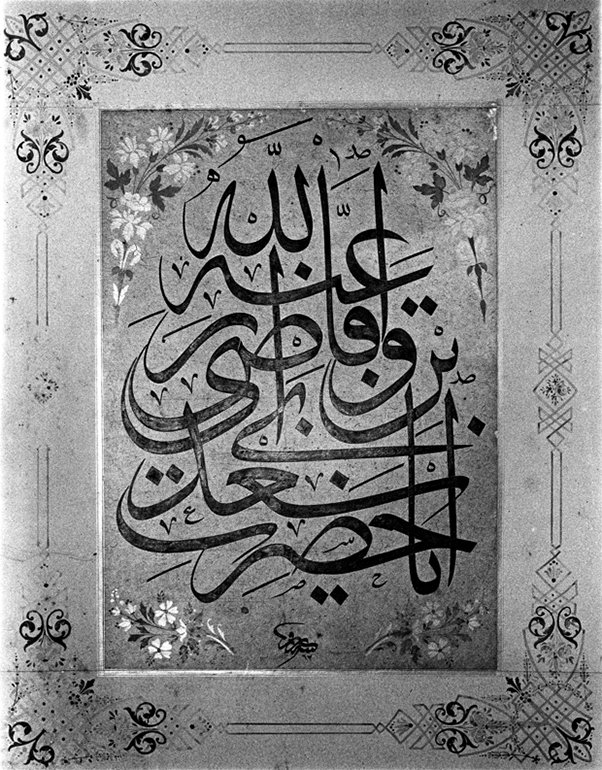 يا حضرت سعد
بن ابى وقاص رضى
الله عنه